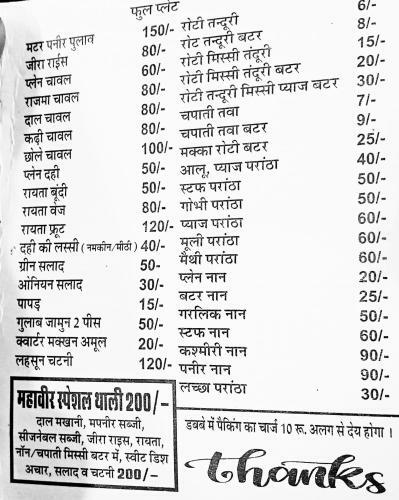 फुल प्लेट
मटर पनीर पुलाव 150/-
जीरा राईस 80/-
प्लेन चावल 60/-
राजमा चावल 80/-
दाल चावल 80/-
कढ़ी चावल 80/-
छोले चावल 100/-
प्लेन दही 50/-
रायता बूंदी 50/-
रायता वेज 80/-
रायता फ्रूट 120/-
दही की लस्सी (नमकीन/मीठी) 40/-
ग्रीन सलाद 50-
ओनियन सलाद 30/-
पापड़ 15/-
गुलाब जामुन 2 पीस 50/-
क्वार्टर मक्खन अमूल 20/-
लहसून चटनी 120/-
महावीर स्पेशल थाली 200/-
दाल मखानी, मपनीर सब्जी,
सीजनेबल सब्जी, जीरा राइस, रायता,
नॉन/चपाती मिस्सी बटर में, स्वीट डिश
अचार, सलाद व चटनी 200/-
रोटी तन्दूरी 6/-
रोट तन्दूरी बटर 8/-
रोटी मिस्सी तंदूरी 15/-
रोटी मिस्सी तंदूरी बटर 20/-
रोटी तन्दूरी मिस्सी प्याज बटर 30/-
चपाती तवा 7/-
चपाती तवा बटर 9/-
मक्का रोटी बटर 25/-
आलू, प्याज परांठा 40/-
स्टफ परांठा 50/-
गोभी परांठा 50/-
प्याज परांठा 60/-
मूली परांठा 60/-
मैथी परांठा 60/-
प्लेन नान 20/-
बटर नान 25/-
गरलिक नान 50/-
स्टफ नान 60/-
कश्मीरी नान 90/-
पनीर नान 90/-
लच्छा परांठा 30/-
डबबे में पैकिंग का चार्ज 10 रू. अलग से देय होगा ।
thanks